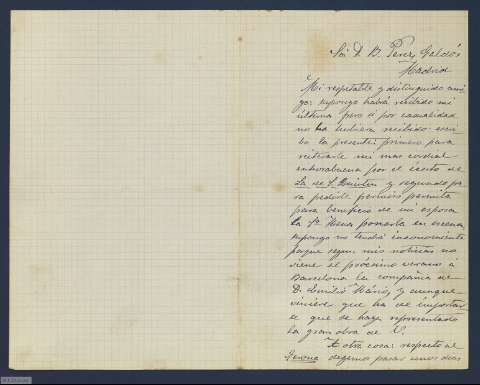 Sor D. B. Perez Galdós
Madrid
Mi respetable y distinguido ami-
go: supongo habrá recibido mi
última pero si por casualidad
no la hubiera recibido escri-
bo la presente: primero para
reiterarle mi mas cordial
enhorabuena por el éxito de
La de S. Quintin y segundo pa-
ra pedirle permiso permita
para beneficio de mi esposa
la Sra ponerla en escena,
supongo no tendrá inconveniente
porque segun mis noticias no
viene el próximo verano á
Barcelona la compañia de
D. Emilio Mário, y aunque
viniera que ha de importar-
le que se haya representado
la gran obra de V.
A otra cosa: respecto al
Gerona dejemos pasar unos dias